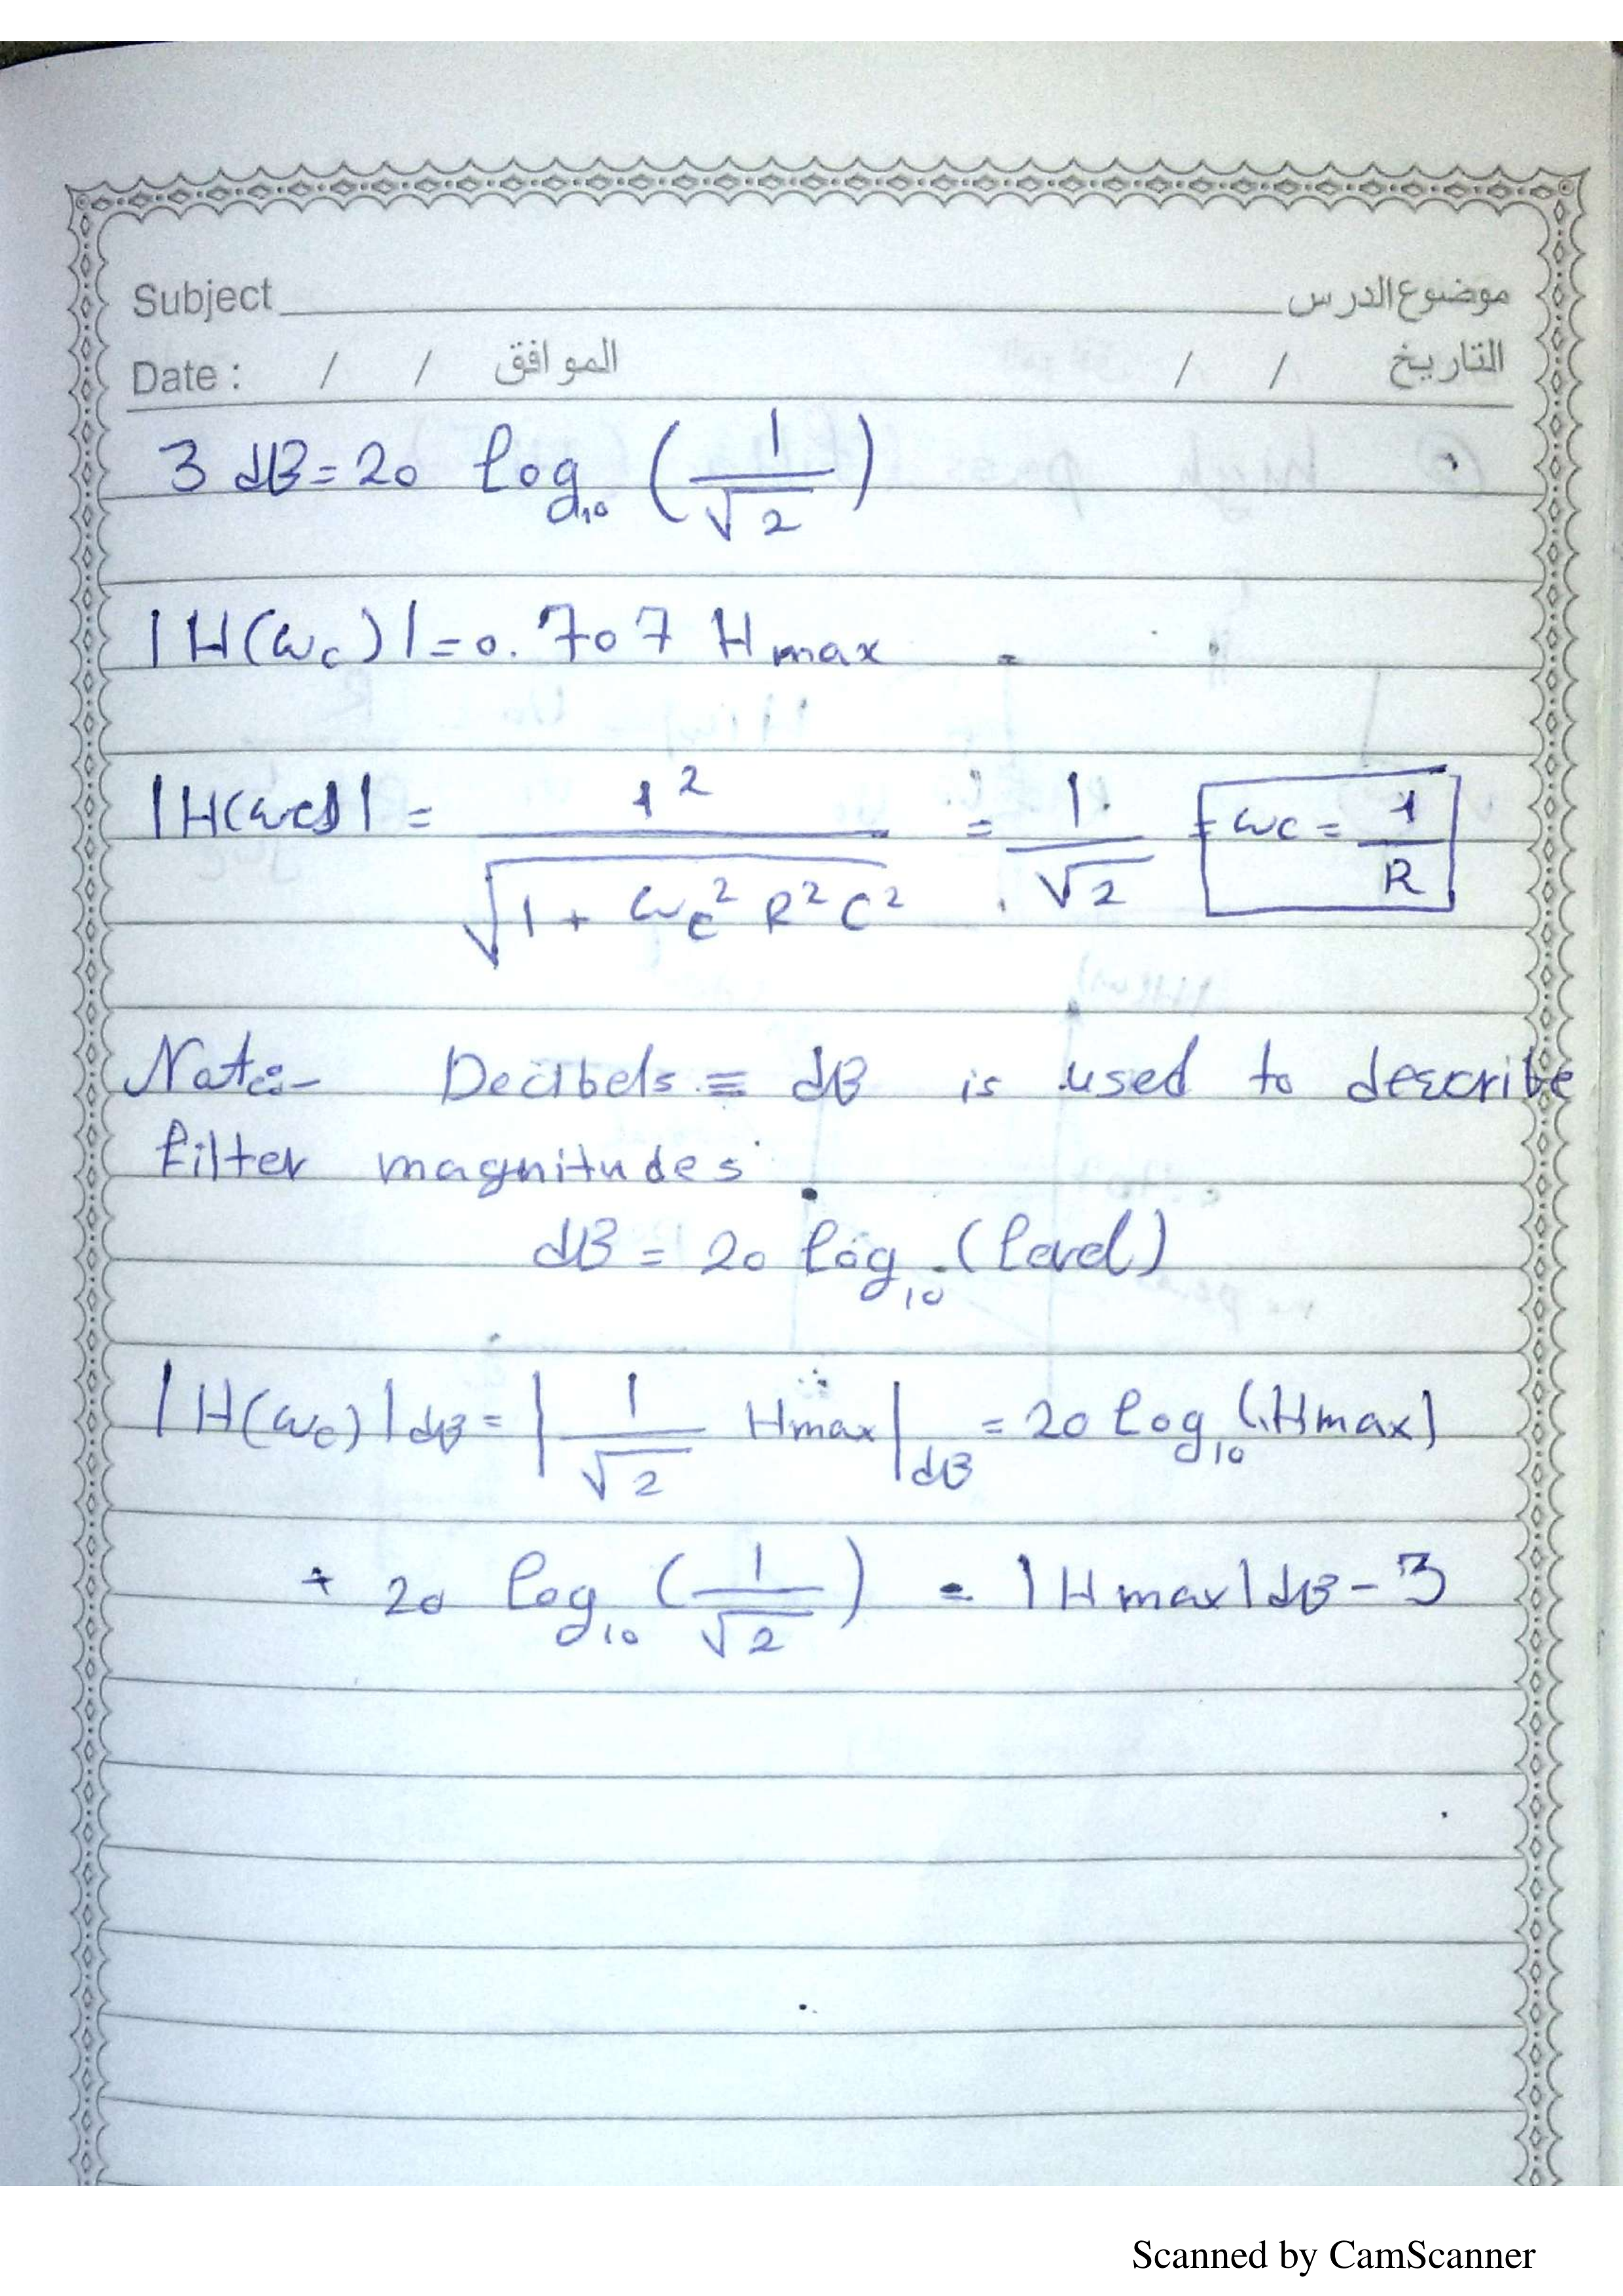 Subject موضوع الدرس
Date : / / الموافق / / التاريخ
3 dB = 20 log₁₀ (1/√2)
|H(ωc)| = 0.707 Hmax
|H(ωc)| = 1²/√(1 + ωc² R² C²) = 1/√2 = ωc = 1/R
Note:- Decibels ≡ dB is used to describe
filter magnitudes
dB = 20 log₁₀ (level)
|H(ωc)|dB = |1/√2 Hmax|dB = 20 log₁₀ (Hmax)
+ 20 log₁₀ (1/√2) = |Hmax|dB - 3
Scanned by CamScanner